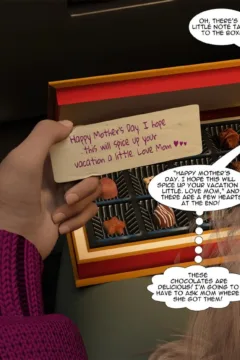 OH, THERE'S
LITTLE NOTE TA
TO THE BOX
Happy Mother's Day. I hope
this will spice up your
vacation a little. Love Mom ♥♥,
"HAPPY MOTHER'S
DAY. I HOPE THIS WILL
SPICE UP YOUR VACATION
LITTLE. LOVE MOM," AND
THERE ARE A FEW HEARTS
AT THE END!
THESE
CHOCOLATES ARE
DELICIOUS! I'M GOING TO
HAVE TO ASK MOM WHERE
SHE GOT THEM!